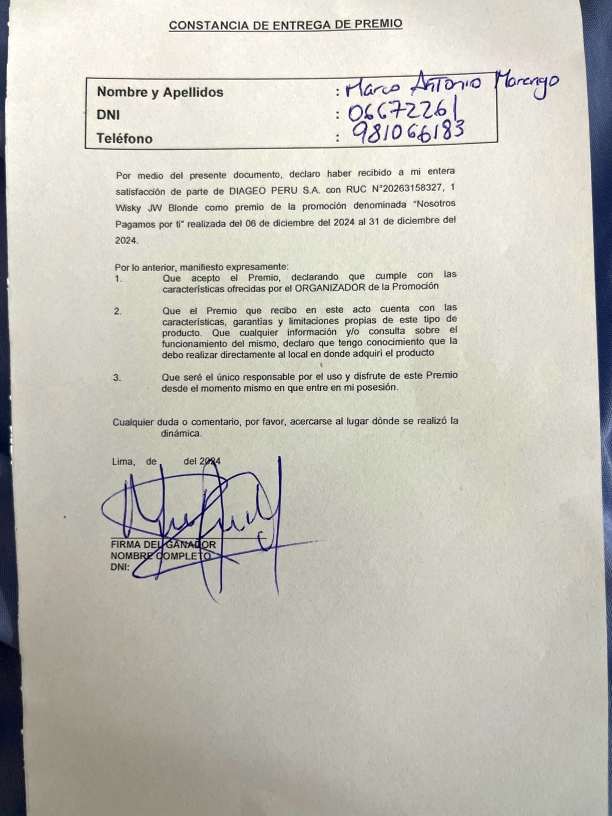 CONSTANCIA DE ENTREGA DE PREMIO
Nombre y Apellidos : Marco Antonio Marengo
DNI : 06672261
Teléfono : 981066183
Por medio del presente documento, declaro haber recibido a mi entera
satisfacción de parte de DIAGEO PERU S.A. con RUC N°20263158327, 1
Wisky JW Blonde como premio de la promoción denominada "Nosotros
Pagamos por ti" realizada del 06 de diciembre del 2024 al 31 de diciembre del
2024.
Por lo anterior, manifiesto expresamente:
1. Que acepto el Premio, declarando que cumple con las
características ofrecidas por el ORGANIZADOR de la Promoción
2. Que el Premio que recibo en este acto cuenta con las
características, garantías y limitaciones propias de este tipo de
producto. Que cualquier información y/o consulta sobre el
funcionamiento del mismo, declaro que tengo conocimiento que la
debo realizar directamente al local en donde adquirí el producto
3. Que seré el único responsable por el uso y disfrute de este Premio
desde el momento mismo en que entre en mi posesión.
Cualquier duda o comentario, por favor, acercarse al lugar dónde se realizó la
dinámica.
Lima, de del 2024
FIRMA DEL GANADOR
NOMBRE COMPLETO
DNI: